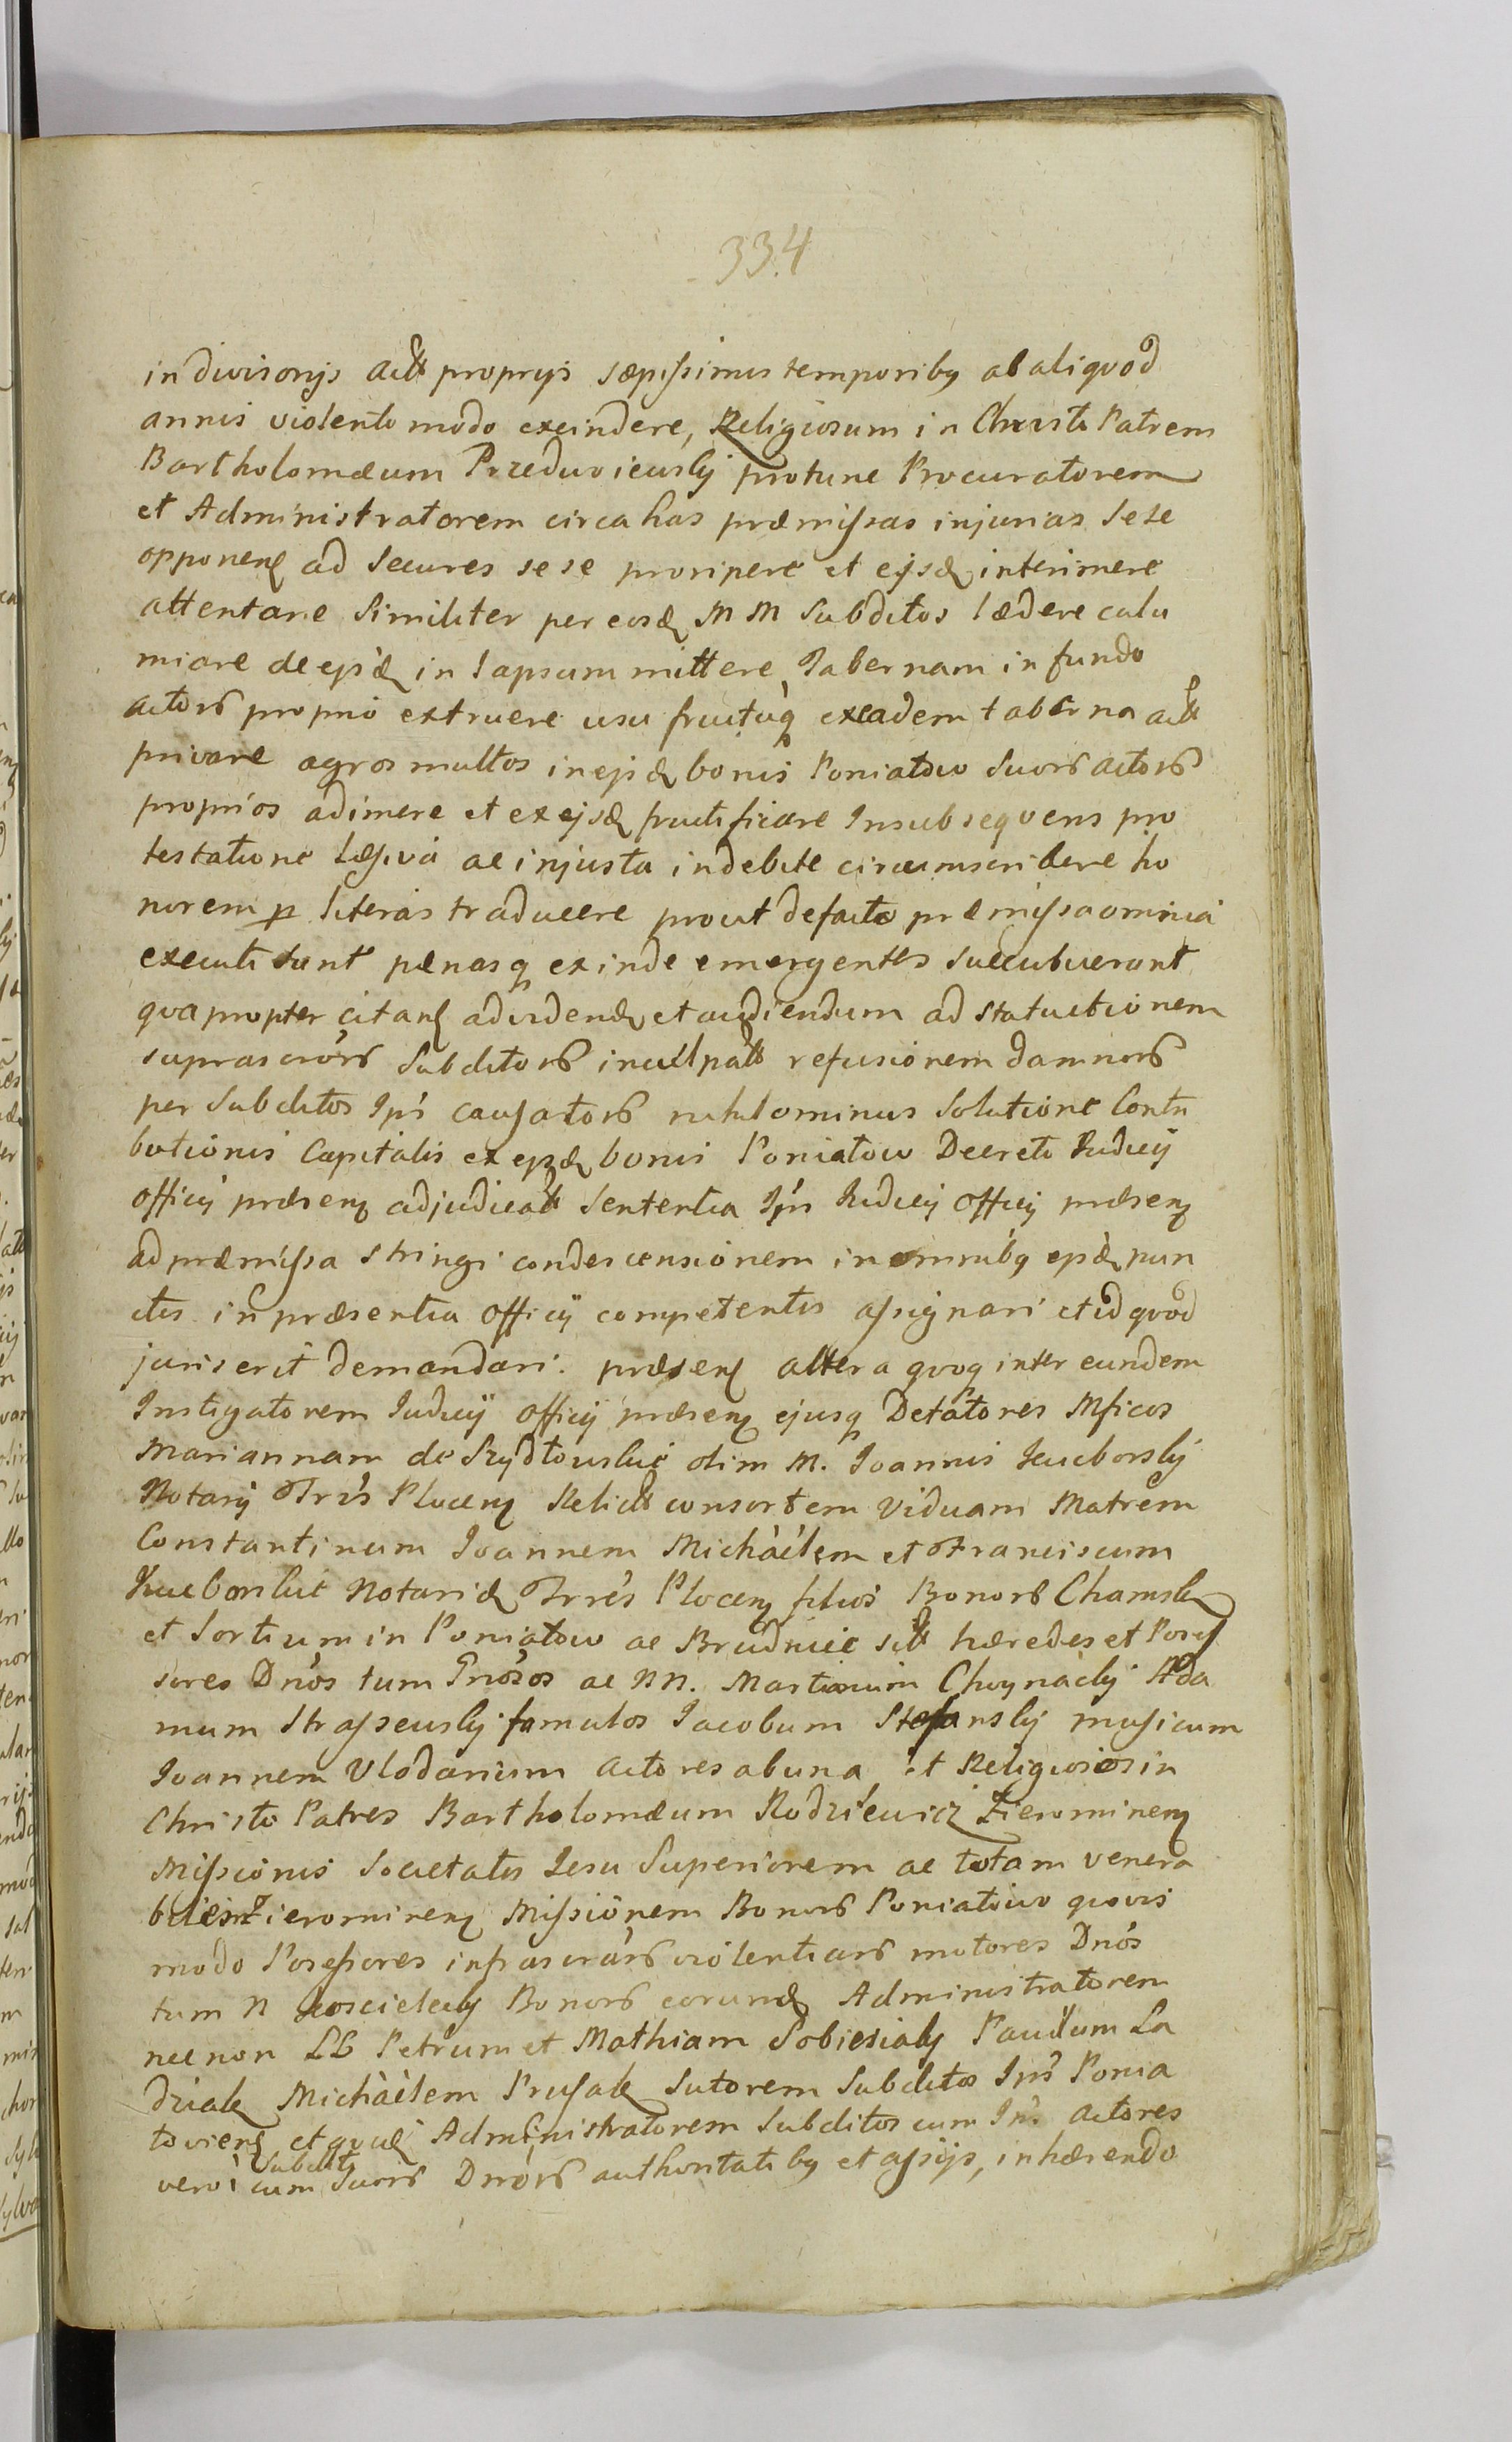 334
indivisonijs act proprijs sæpissimis temporibq ab aliqvod
annis violento modo excindere, Religiosum in Christo Patrem
Bartholomæum protunc Procuratorem
et Administratorem circa has præmissas injurias sese
opponen ad secures sese proripere et ejsd interimere
attentare Similiter per eosd M M Subditos lædere calu
miare de ejsd in lapsum mittere, Tabernam in fundo
actorū proprio extruere usu fructuq exeadem taberna act
privare agros multos in ejsd bonis Poniatow Suorū actorū
proprios adimere et ex ejsd fructificare Insubsequens pro
testatione læsiva ac injusta indebite circumscribere ho
norem p literas traducere prout defacto præmissa omnia
executi sunt pænasq exinde emergentes succubuerunt
qvapropter citan ad videnđ et audiendum ad statuitionem
suprascrōrū Subditorū inculpatt refusionem damnorū
per Subditos Ipś causatorū nihilominus Solutione Contri
butionis Capitalis ex ejsd bonis Poniatow Decreto Judicij
officij præsen adjudicatt Sententia Ipś Judicij officij præsen
ad præmissa stringi condescensionem in omnibq ejsd pun
ctis in præsentia officij competentis assignari et id qvod
juris erit demandari. præsen altera qvoq inter eundem
Instigatorem Judicij officij præsen ejusq Delatores Mficos
Mariannam de Szydłowskie olim M. Joannis
Notarij Trrīs Plocen Relict consortem viduam Matrem
Constantinum Joannem Michàélem et Franciscum
Notarid Trrēs Plocen filios Bonorū
et Sortium in Poniatow ac Brudnice sctt hæredes et Poss
sores Dnōs tum Gnōsos ac NN. Martinum Choynacki Ada
mum famulos Jacobum Stefanski musicum
Joannem Vlodarium actores abuna, et Religiosos in
Christo Patres Bartholomæum Rodziewicz Zierominen
Missionis Societatis Jesu Superiorem ac totam venera
bilem Zierominen Missionem Bonorū Poniatowo qvovis
modo Possessores infrascrārū violentiarū motores Dnōs
tum N Koscielecki Bonorū eorund Administratorem
nec non LL Petrum et Mathiam Sobiesiaki Paulum La
dziak Michàélem Prusak Sutorem Subditos Ipś Ponia
tovien et Administratorem Subditos cum Ipś actores
vero cum subdit Suorū Dnōrū authoritatibq et assijs, inhærendo